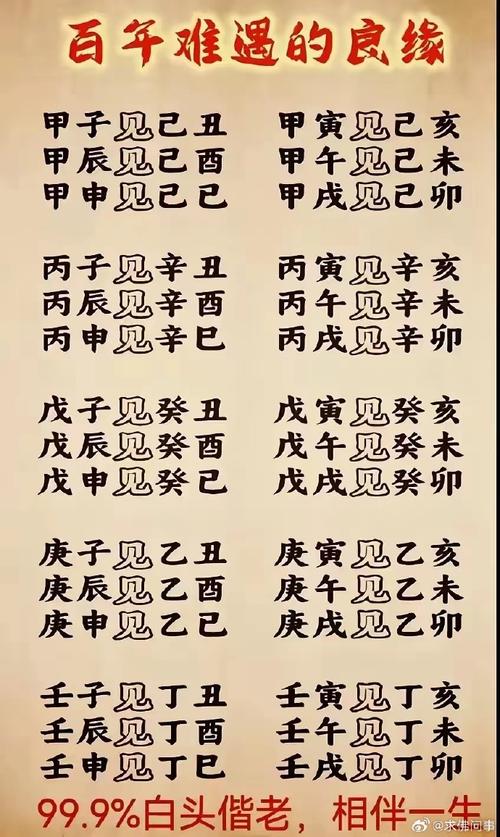 百年难遇的良缘
甲子见己丑 甲寅见己亥
甲辰见己酉 甲午见己未
甲申见己巳 甲戌见己卯
丙子见辛丑 丙寅见辛亥
丙辰见辛酉 丙午见辛未
丙申见辛巳 丙戌见辛卯
戊子见癸丑 戊寅见癸亥
戊辰见癸酉 戊午见癸未
戊申见癸巳 戊戌见癸卯
庚子见乙丑 庚寅见乙亥
庚辰见乙酉 庚午见乙未
庚申见乙巳 庚戌见乙卯
壬子见丁丑 壬寅见丁亥
壬辰见丁酉 壬午见丁未
壬申见丁巳 壬戌见丁卯
99.9%白头偕老，相伴一生
@求佛问事